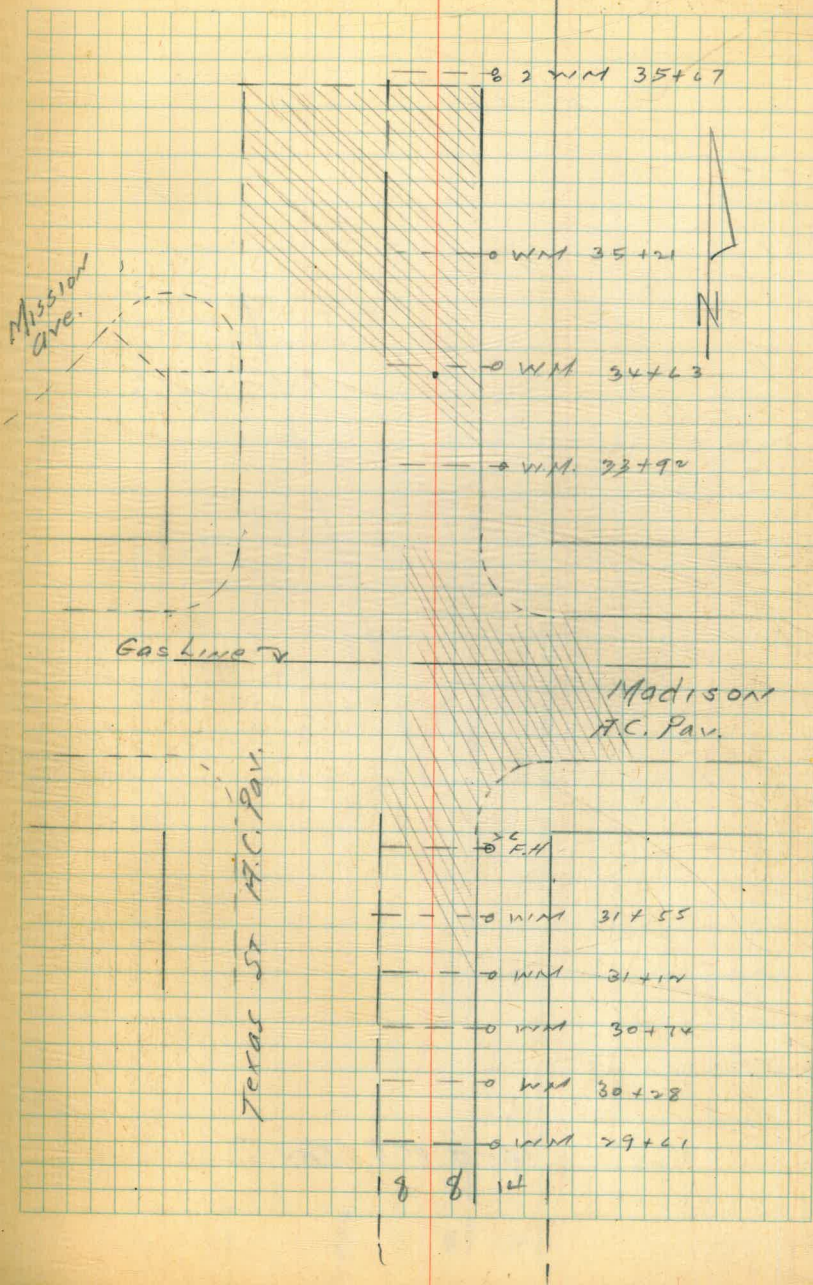 2 WM 35+67
WM 35+21
Mission
ave.
N
WM 34+63
W.M. 33+92
Gas Line
Madison
A.C. Pav.
Texas St A.C. Pav.
F.H
WM 31+55
WM 31+12
WM 30+74
WM 30+28
WM 29+61
8 8 14